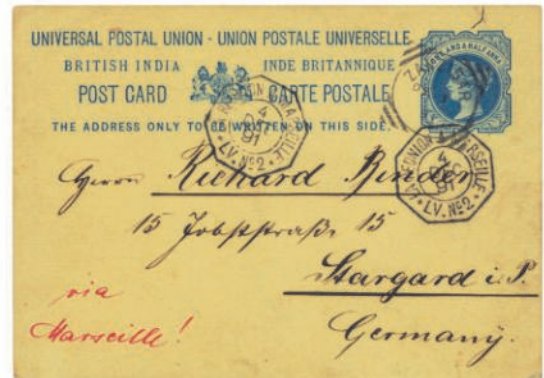 UNIVERSAL POSTAL UNION - UNION POSTALE UNIVERSELLE
BRITISH INDIA INDE BRITANNIQUE
POST CARD CARTE POSTALE
THE ADDRESS ONLY TO BE WRITTEN ON THIS SIDE.
ONE AND A HALF ANNA
MARSEILLE
4
91
LV. Nº2
4
91
LV. Nº2
Herrn Richard Binder
15 Jobststraße 15
Stargard i. P.
Germany.
via
Marseille!